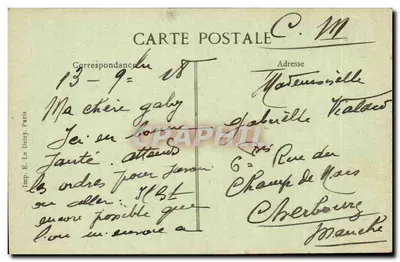 C. M
CARTE POSTALE
Correspondance
Adresse
13 - 9 - 18
Mademoiselle
Ma chère gaby
Gabrielle
Ici en bonne
CPARAMA
santé. attends
6 Rue du
les ordres pour savoir
Champ de Mars
ou aller. Il Est
Cherbourg
encore possible que
l'on m'envoie a
Manche
Imp. E. Le Deley, Paris